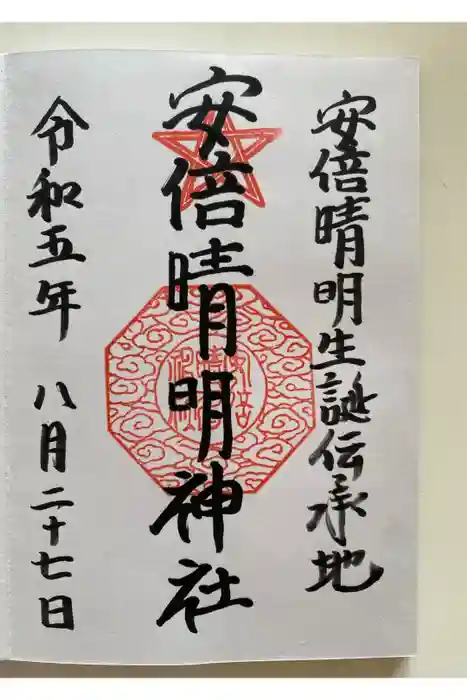 安倍晴明生誕伝承地
安倍晴明神社
令和五年 八月二十七日